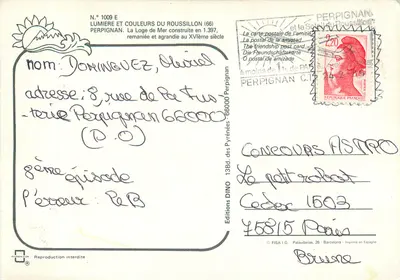 N.° 1009 E
LUMIERE ET COULEURS DU ROUSSILLON (66)
PERPIGNAN. La Loge de Mer construite en 1.397,
remaniée et agrandie au XVIème siècle
nom: DOMINGUEZ, Olivier
adresse: 8, rue de la Fus-
terie Perpignan 66000
(P.O)
8ème épisode
l'erreur: le B
Reproduction interdite
Editions DINO - 13Bd. des Pyrénées - 66000 Perpignan
PERPIGNAN
La carte postale de l'amitié
La postale de la amistad
The friendship post card
Die Freundschaftskarte
O postal de amizade
PERPIGNAN
2,20
CONCOURS ASTRO
Le petit robot
Cedex 1503
75815 Paris
Brune